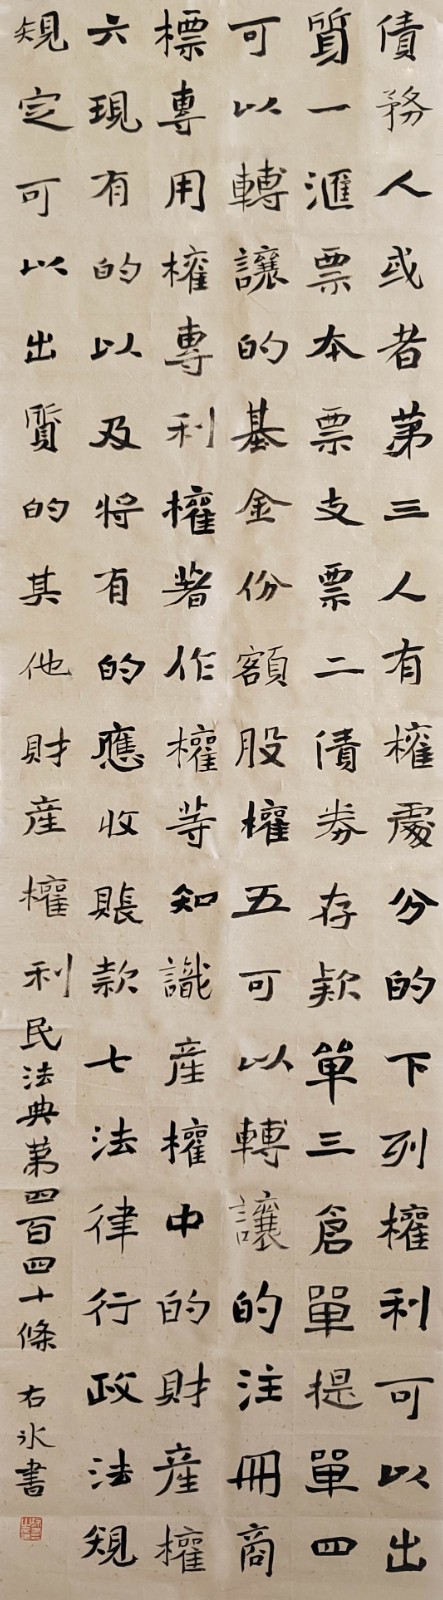 債務人或者第三人有權處分的下列權利可以出
質一滙票本票支票二債券存款單三倉單提單四
可以轉讓的基金份額股權五可以轉讓的注冊商
標專用權專利權著作權等知識産權中的財産權
六現有的以及將有的應收賬款七法律行政法規
規定可以出質的其他財産權利民法典第四百四十條 右冰書